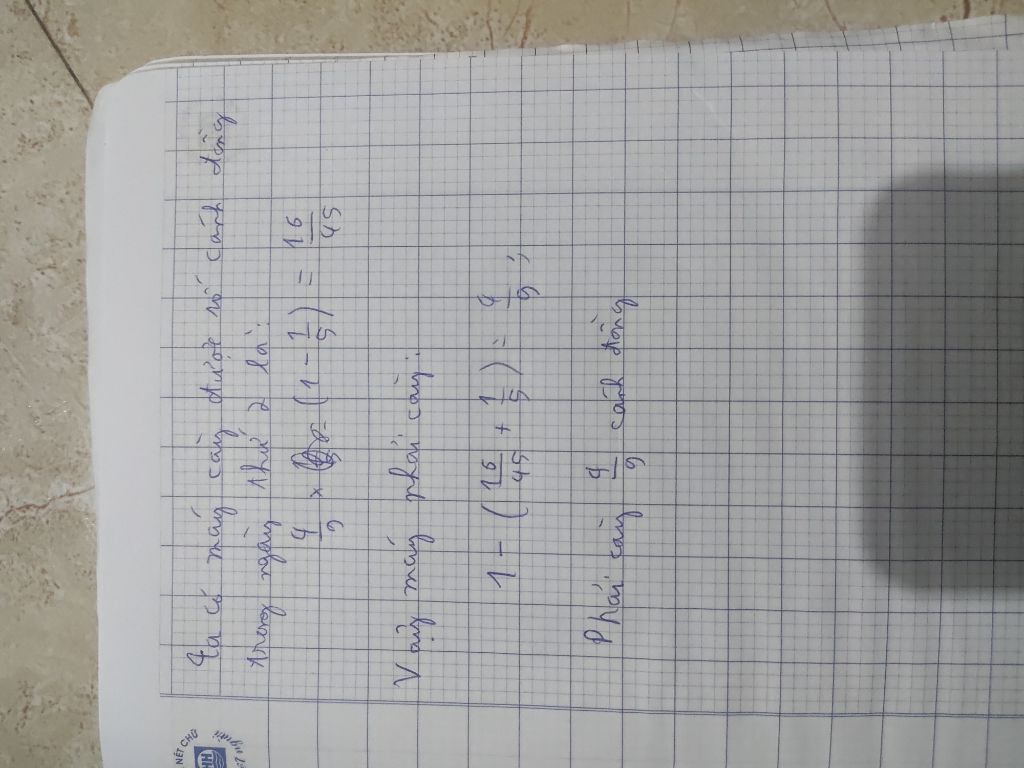 Ta có máy cày được số cánh đồng
trong ngày thứ 2 là:
4/9 × (1 - 1/5) = 16/45
Vậy máy phải cày:
1 - (16/45 + 1/5) = 4/9;
Phải cày 4/9 cánh đồng
NÉT CHỮ